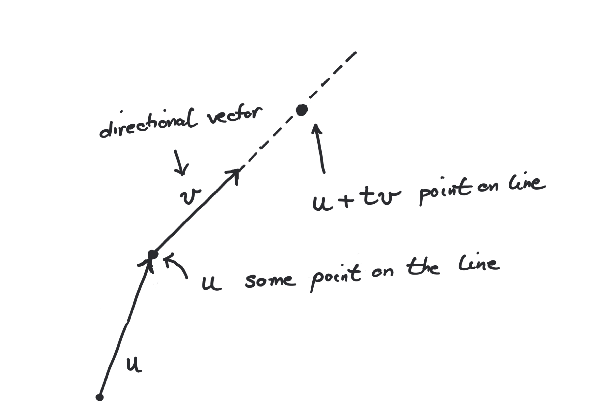 directional vector
v
u + tv point on line
u some point on the line
u